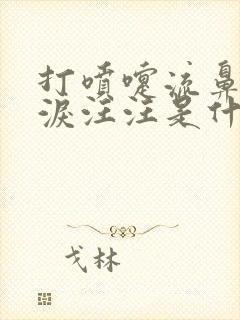 打喷嚏流鼻
泪汪汪是什
戈林